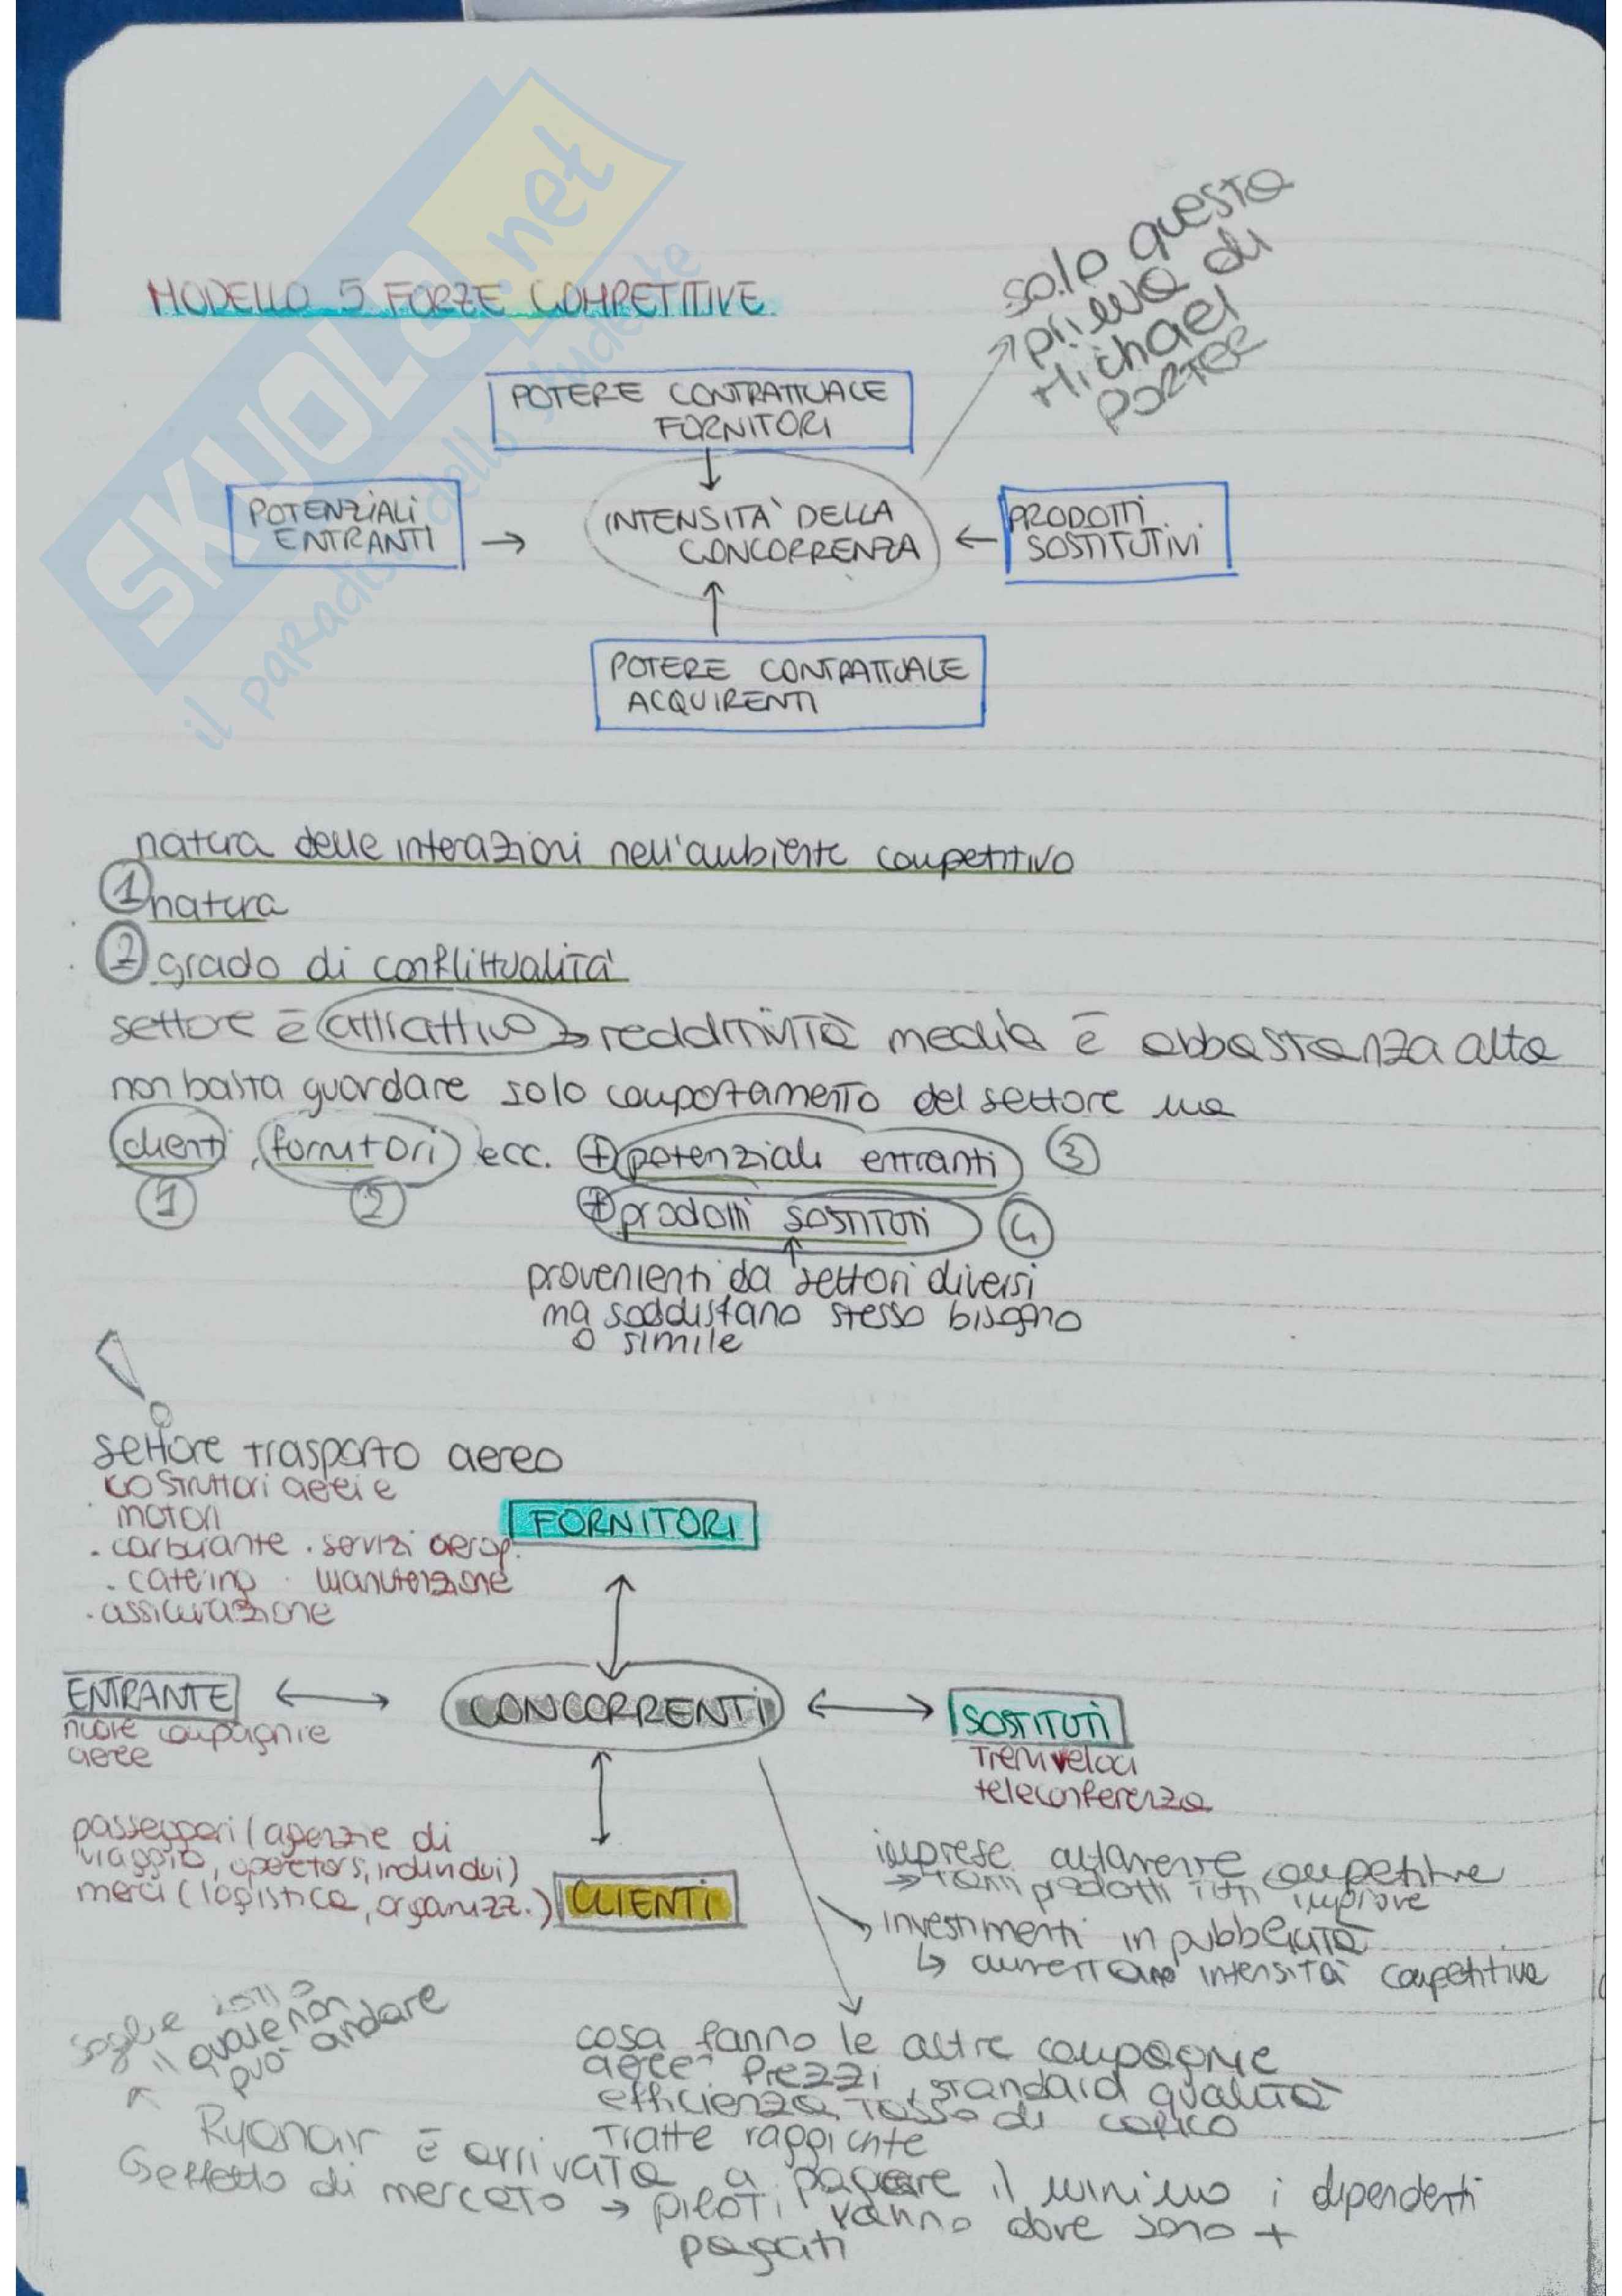 SKUOLA.net
il paradiso dello studente
MODELLO 5 FORZE COMPETITIVE
solo questa
prima di
Michael
PORTER
POTERE CONTRATTUALE
FORNITORI
POTENZIALI
ENTRANTI
INTENSITÀ DELLA
CONCORRENZA
PRODOTTI
SOSTITUTIVI
POTERE CONTRATTUALE
ACQUIRENTI
natura delle interazioni nell'ambiente competitivo
1 natura
2 grado di conflittualità
settore è attrattivo → redditività media è abbastanza alta
non basta guardare solo comportamento del settore ma
clienti, fornitori ecc. + potenziali entranti 3
1 2 + prodotti sostituti 4
provenienti da settori diversi
ma soddisfano stesso bisogno
o simile
settore trasporto aereo
costruttori aerei e
motori
FORNITORI
. carburante . servizi aerop.
. catering . manutenzione
. assicurazione
ENTRANTE
nuove compagnie
aeree
CONCORRENTI
SOSTITUTI
Treni veloci
teleconferenza
passeggeri (agenzie di
viaggio, operators, individui)
merci (logistica, organizz.)
CLIENTI
imprese altamente competitive
→ tanti prodotti
investimenti in pubblicità
↳ aumentano intensità competitiva
soglia sotto
il quale non
può andare
cosa fanno le altre compagnie
aeree? Prezzi, standard qualità
efficienza, tasso di carico
Tratte raggiunte
Ryanair è arrivata a pagare il minimo i dipendenti
↳ effetto di mercato → piloti vanno dove sono +
pagati